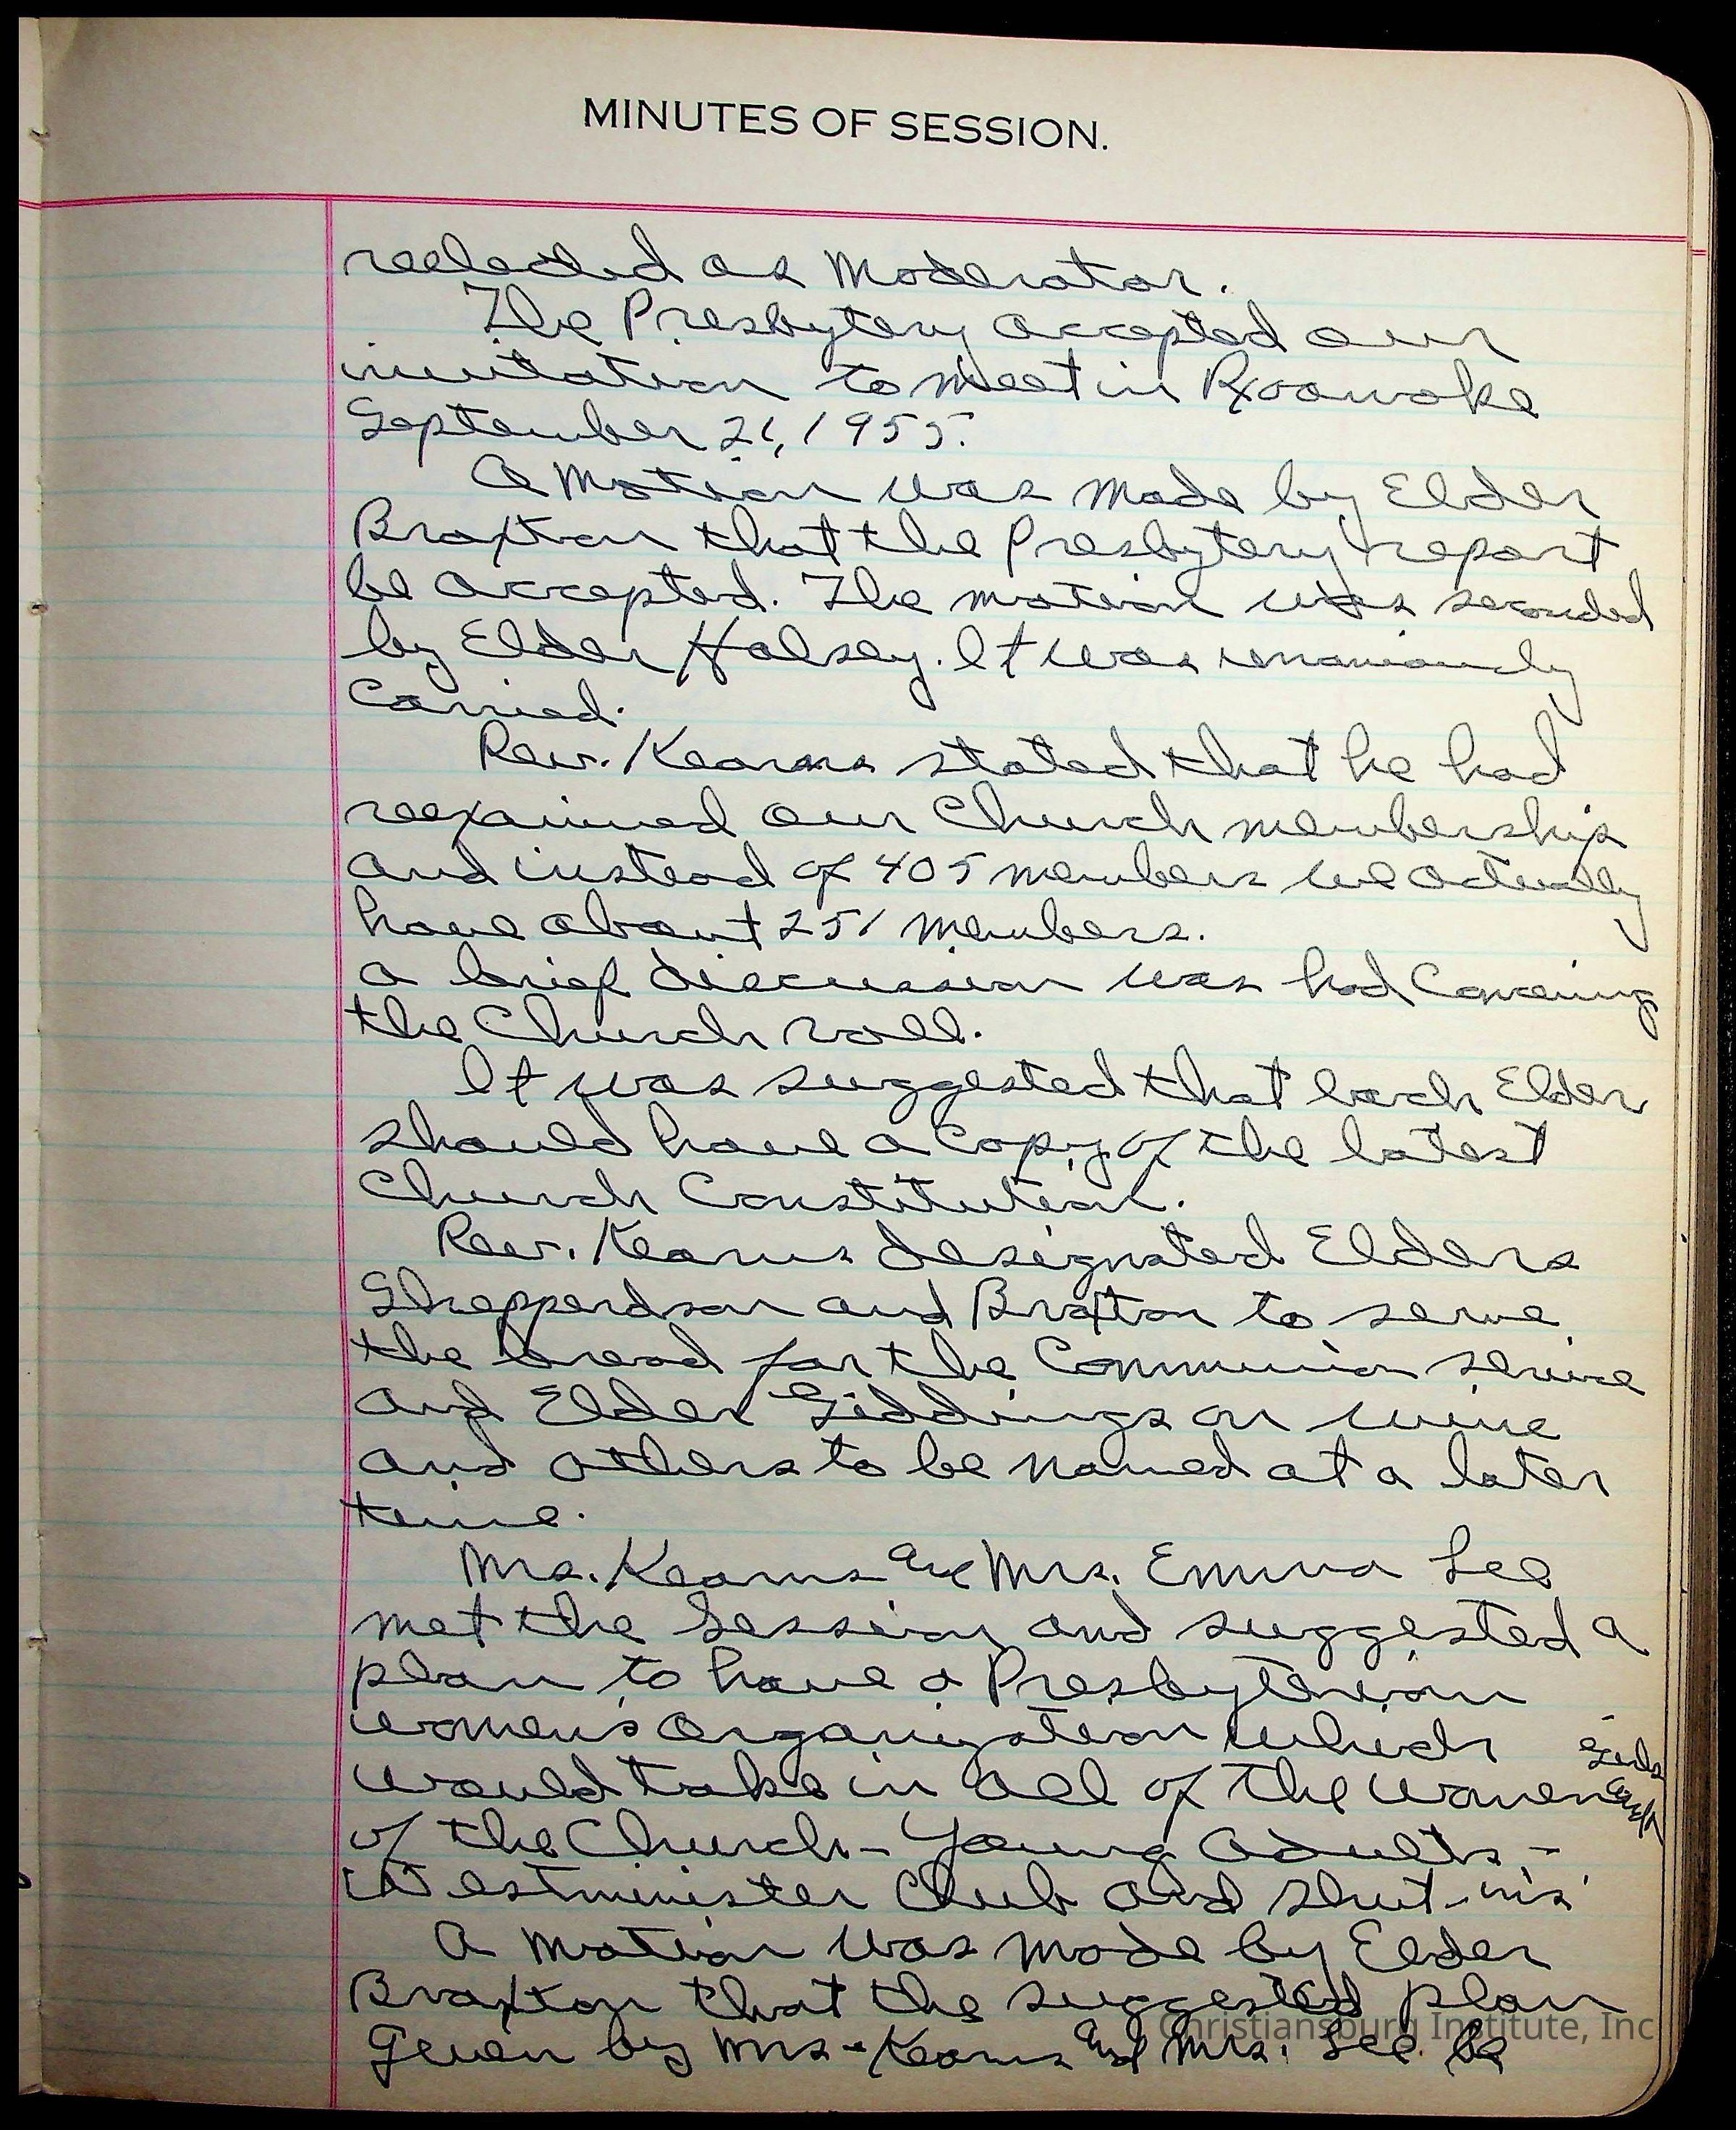 MINUTES OF SESSION.
reelected as Moderator.
The Presbytery accepted our
invitation to meet in Roanoke
September 21, 1955.
A motion was made by Elder
Braxton that the Presbytery report
be accepted. The motion was seconded
by Elder Halsey. It was unaniously
Carried.
Rev. Kearns stated that he had
reexamined our Church membership
and instead of 405 members we actually
have about 251 members.
a brief discussion was had Concening
the Church roll.
It was suggested that each Elder
should have a Copy of the latest
Church Constitution.
Rev. Kearns designated Elders
Shepperdson and Braxton to serve
the bread for the Communion service
and Elder Giddings on wine
and others to be named at a later
time.
Mrs. Kearns and Mrs. Emma Lee
met the Session and suggested a
plan to have a Presbyterian
women's Organization which
would take in all of the women Girls and
of the Church - Young Adults, -
Westminister Club and shut-ins
A motion was made by Elder
Braxton that the suggested plan
Given by Mrs. Kearns and Mrs. Lee be
Christiansburg Institute, Inc